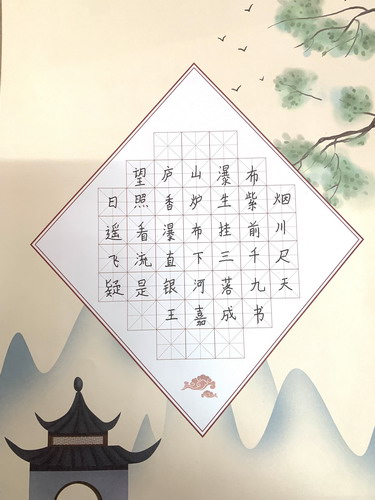 望庐山瀑布
日照香炉生紫烟
遥看瀑布挂前川
飞流直下三千尺
疑是银河落九天
王嘉成书